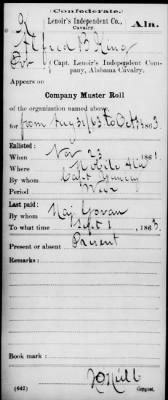 (Confederate.)
K Lenoir's Independent Co., Cavalry. Ala.
Alfred B King
Pvt, Capt. Lenoir's Independent Company, Alabama Cavalry.
Appears on
Company Muster Roll
of the organization named above,
for from Aug 31/63 to Oct 1863
Enlisted:
When Nov 23, 1861.
Where Mobile Ala
By whom Capt
Period War
Last paid:
By whom Maj Govan
To what time Sept 1, 1863.
Present or absent Present
Remarks:
Book mark:
(642) Copyist.